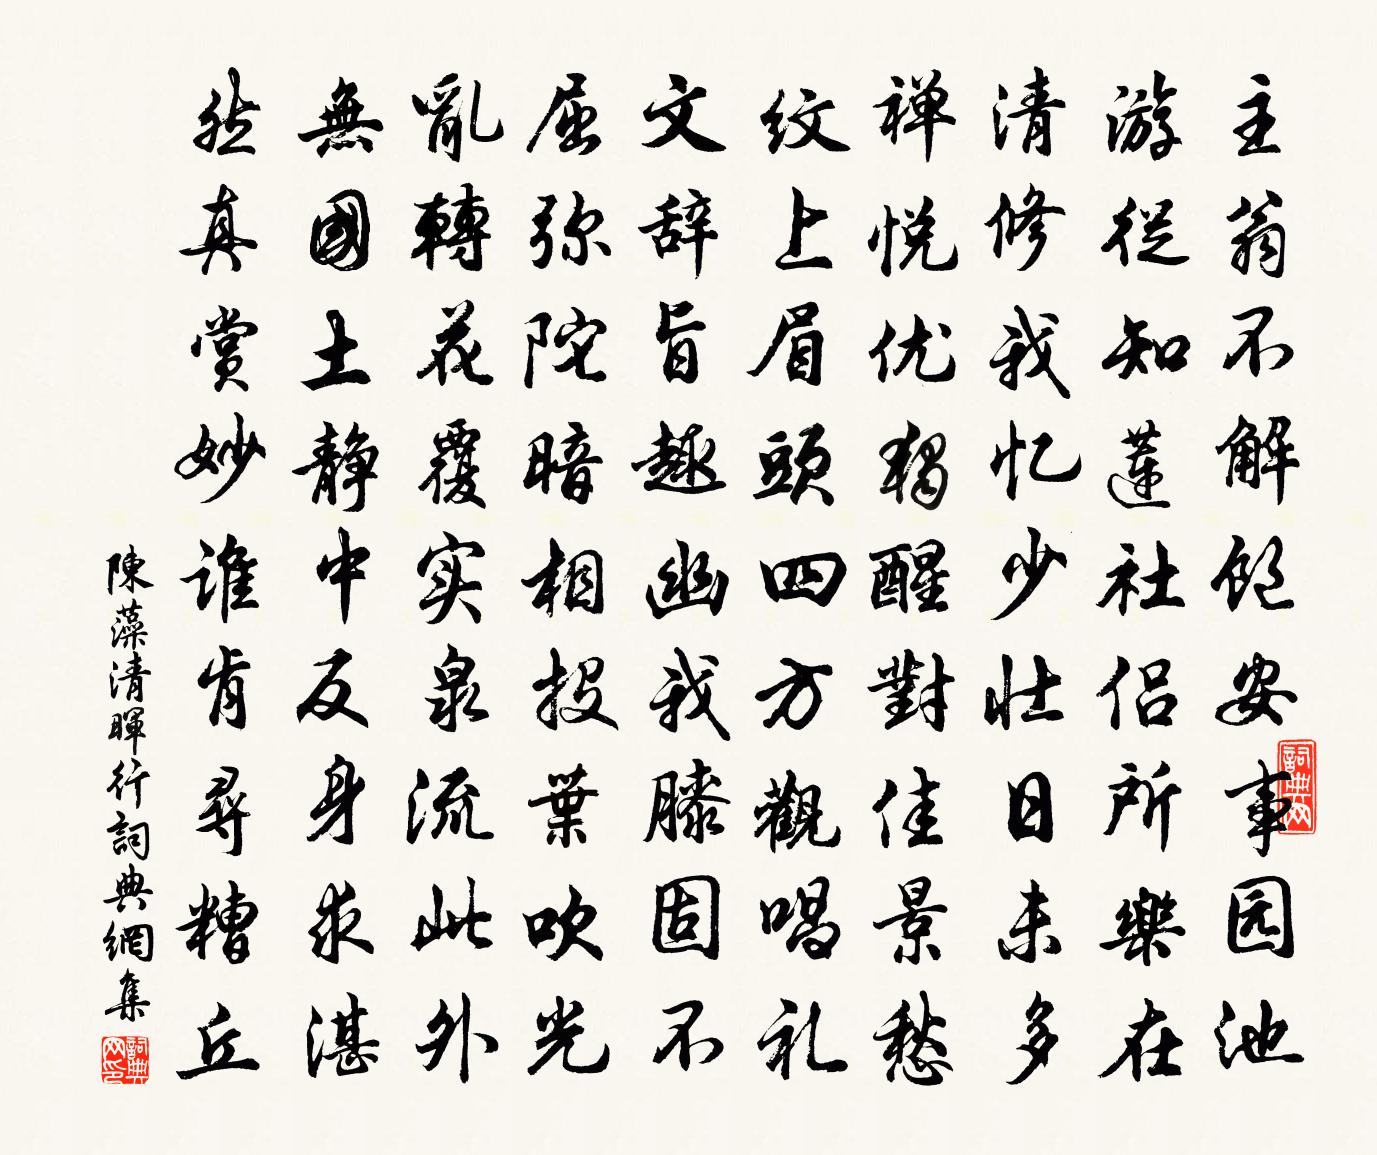 主翁不解飽安事园池
游從知蓮社侣所樂在
清修我忆少壮日未多
禅悦优独醒對佳景愁
纹上眉頭四方觀唱礼
文辞旨趣幽我膝固不
屈弥陀暗相投葉吹光
亂轉花覆实泉流此外
無國土静中反身求湛
然真赏妙谁肯尋糟丘
陳藻清暉行詞典網集
詞典网
詞典网